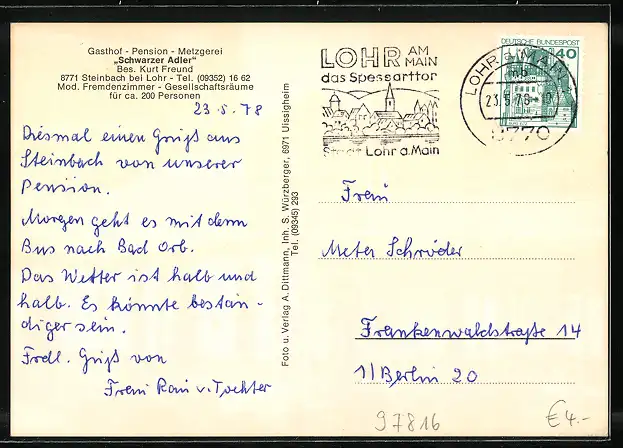 Gasthof - Pension - Metzgerei
„Schwarzer Adler"
Bes. Kurt Freund
8771 Steinbach bei Lohr - Tel. (09352) 16 62
Mod. Fremdenzimmer - Gesellschaftsräume
für ca. 200 Personen
23.5.78
Diesmal einen Gruß aus
Steinbach von unserer
Pension.
Morgen geht es mit dem
Bus nach Bad Orb.
Das Wetter ist halb und
halb. Es könnte bestän-
diger sein.
Frdl. Gruß von
Frau Rau v. Tochter
Foto u. Verlag A. Dittmann, Inh. S. Würzberger, 6971 Uissigheim
Tel. (09345) 293
LOHR AM MAIN
das Spessarttor
Stadt Lohr a. Main
LOHR a MAIN
23.5.78
8770
DEUTSCHE BUNDESPOST
40
Frau
Meta Schröder
Frankenwaldstraße 14
1/Berlin 20
97816
€ 4.-